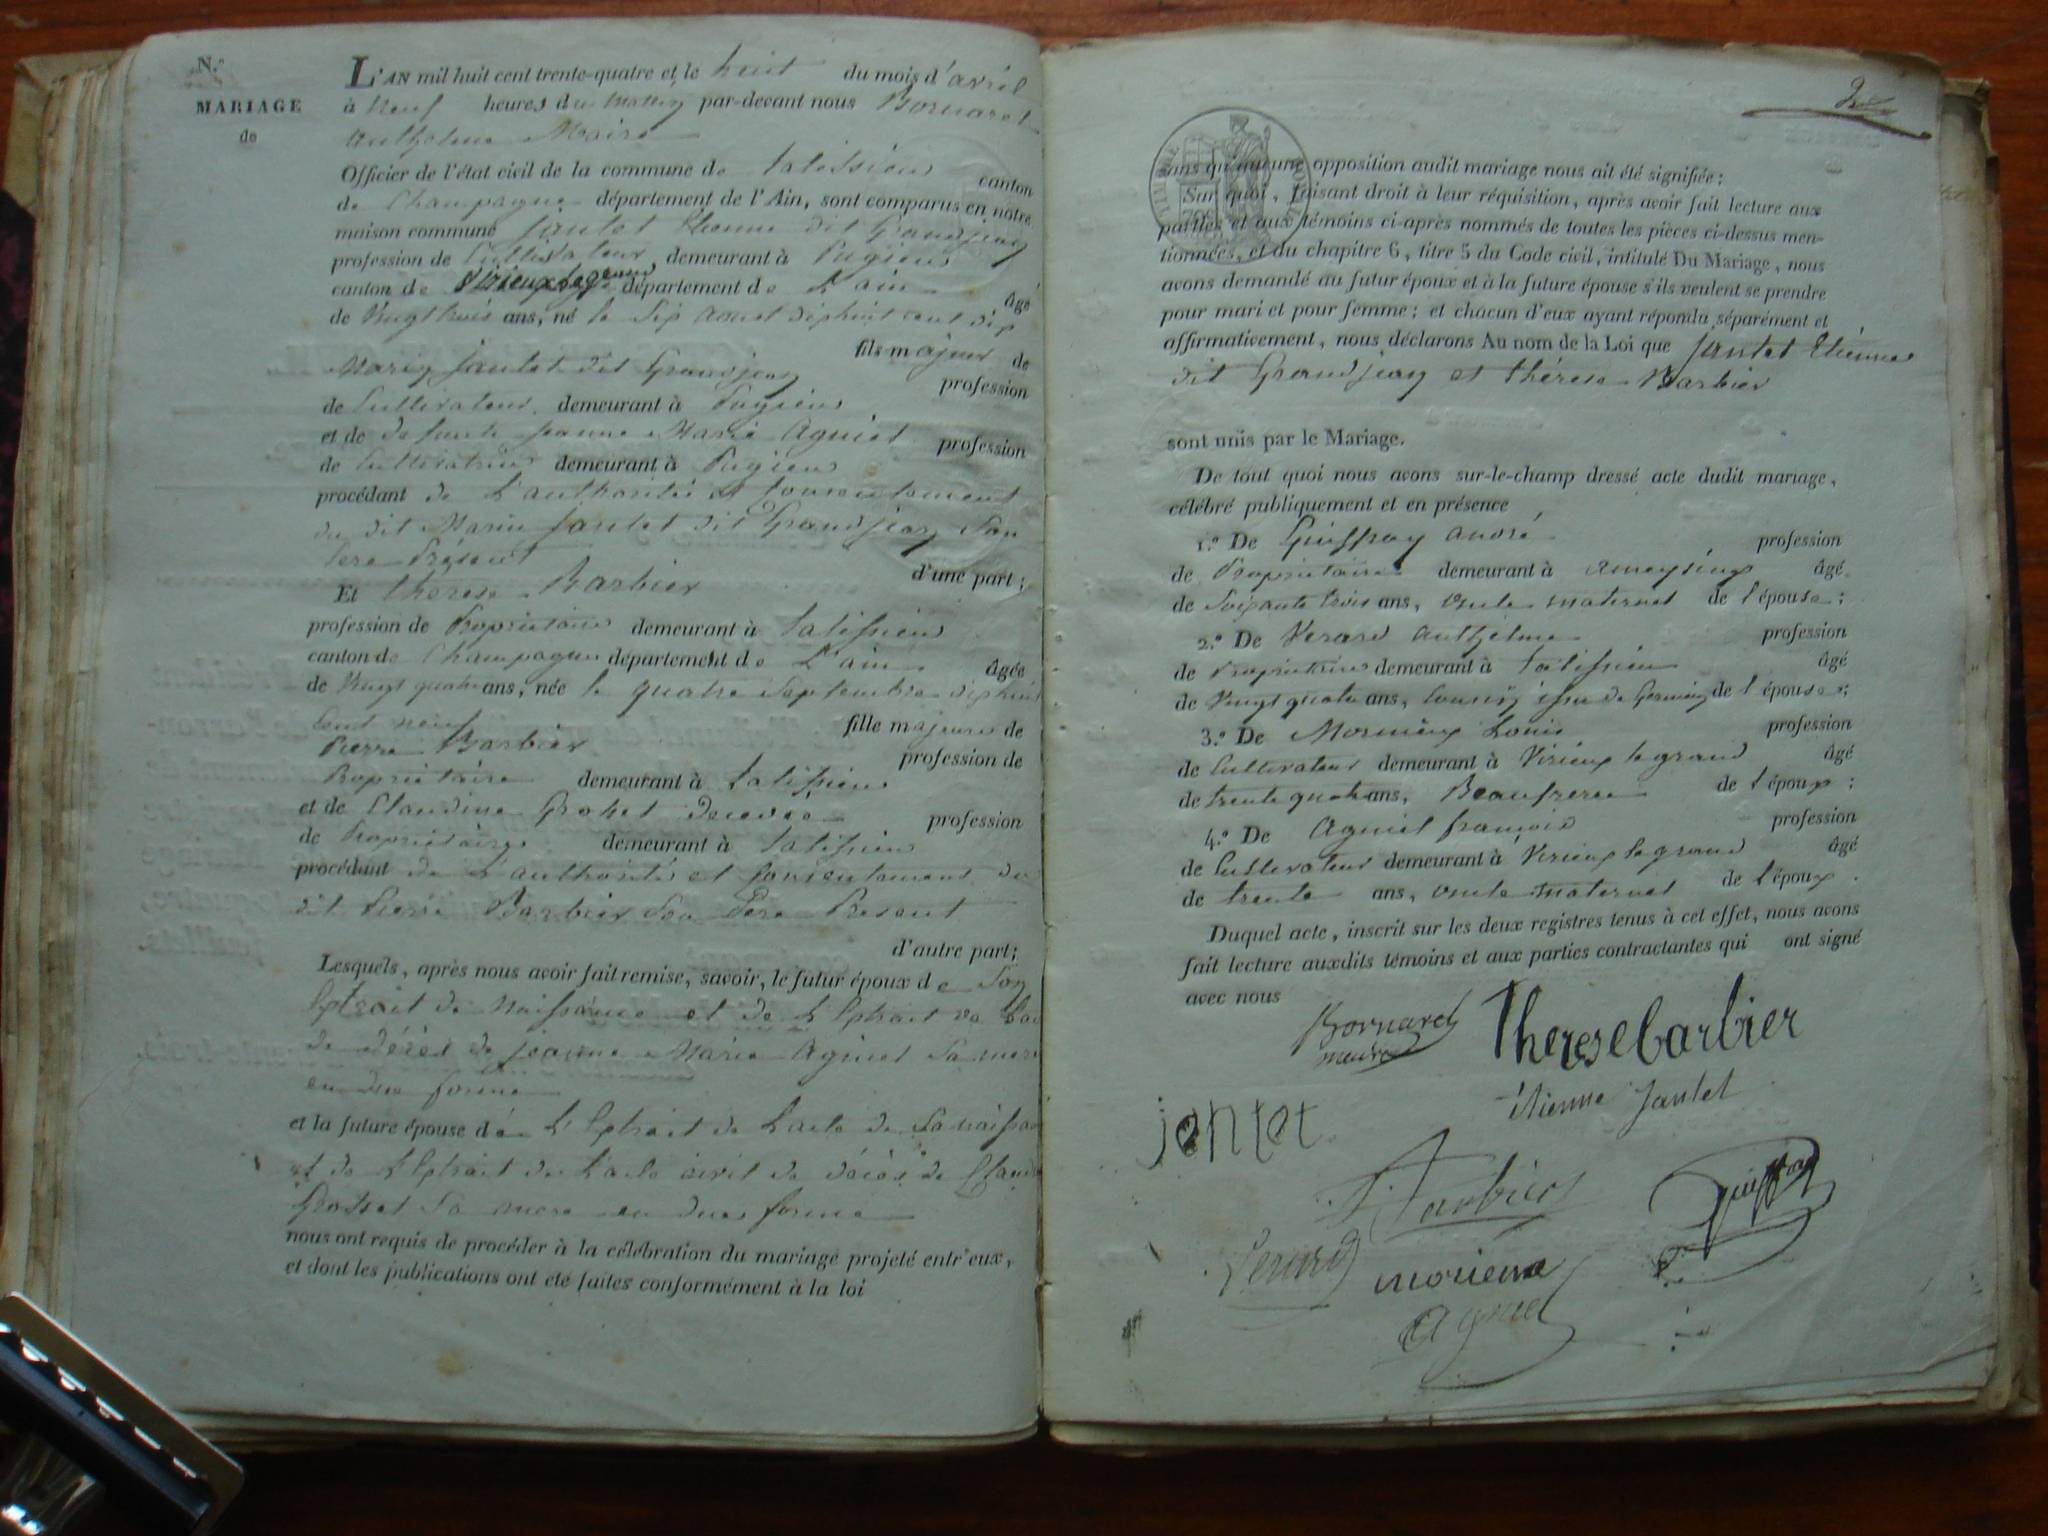 N.º
MARIAGE
de
L'AN mil huit cent trente-quatre et le huit du mois d'avril
à neuf heures du matin par-devant nous Bornarel
Anthelme Maire
Officier de l'état civil de la commune de talissieu canton
de Champagne département de l'Ain, sont comparus en notre
maison commune Jantet Etienne dit Grandjean
profession de Cultivateur demeurant à Pugieu
canton de Virieux le grand département de L'ain âgé
de Vingt trois ans, né le Six Aout dix huit cent dix
fils majeur de
Marin Jantet dit Grandjean profession
de Cultivateur demeurant à Pugieu
et de defunte jeanne Marie Agniel profession
de Cultivatrice demeurant à Pugieu
procédant de L'authorité et Consentement
du dit Marin Jantet dit Grandjean Son
Pere Présent
d'une part;
Et thérèse Barbier
profession de Proprietaire demeurant à talissieu
canton de Champagne département de L'ain âgée
de Vingt quatre ans, née le quatre Septembre dix huit
Cent neuf fille majeure de
Pierre Barbier profession de
Propriétaire demeurant à talissieu
et de Claudine Grosset Decedée profession
de Propriétaire demeurant à talissieu
procédant de L'authorité et Consentement du
dit Pierre Barbier Son Pere Présent
d'autre part;
Lesquels, après nous avoir fait remise, savoir, le futur époux de Son
Extrait de Naissance et de L'Extrait de
de décès de jeanne Marie Agniel Sa mere
en due forme
et la future épouse de L'Extrait de L'acte de Sa naissan
et de L'Extrait de L'acte civil de décès de Claud
Grosset Sa mere en due forme
nous ont requis de procéder à la célébration du mariage projeté entr'eux,
et dont les publications ont été faites conformément à la loi
TIMBRE
sans qu'aucune opposition audit mariage nous ait été signifiée;
Sur quoi, faisant droit à leur réquisition, après avoir fait lecture aux
parties et aux témoins ci-après nommés de toutes les pièces ci-dessus men-
tionnées, et du chapitre 6, titre 5 du Code civil, intitulé Du Mariage, nous
avons demandé au futur époux et à la future épouse s'ils veulent se prendre
pour mari et pour femme; et chacun d'eux ayant répondu séparément et
affirmativement, nous déclarons Au nom de la Loi que Jantet Etienne
dit Grandjean et thérèse Barbier
sont unis par le Mariage.
De tout quoi nous avons sur-le-champ dressé acte dudit mariage,
célébré publiquement et en présence
1.º De Guiffray André profession
de Proprietaire demeurant à ameysieux âgé
de Soixante trois ans, oncle maternel de l'épouse;
2.º De Verard Anthelme profession
de Proprietaire demeurant à talissieu âgé
de Vingt quatre ans, Cousin issu de Germain de l'épouse;
3.º De Mornieux Louis profession
de Cultivateur demeurant à Virieux le grand âgé
de trente quatre ans, Beaufrere de l'époux;
4.º De Agniel françois profession
de Cultivateur demeurant à Virieux le grand âgé
de trente ans, oncle maternel de l'époux.
Duquel acte, inscrit sur les deux registres tenus à cet effet, nous avons
fait lecture auxdits témoins et aux parties contractantes qui ont signé
avec nous
Bornarel
maire
Therese barbier
étienne Jantet
jantet
Barbier
Guiffray
Verard
Agniel